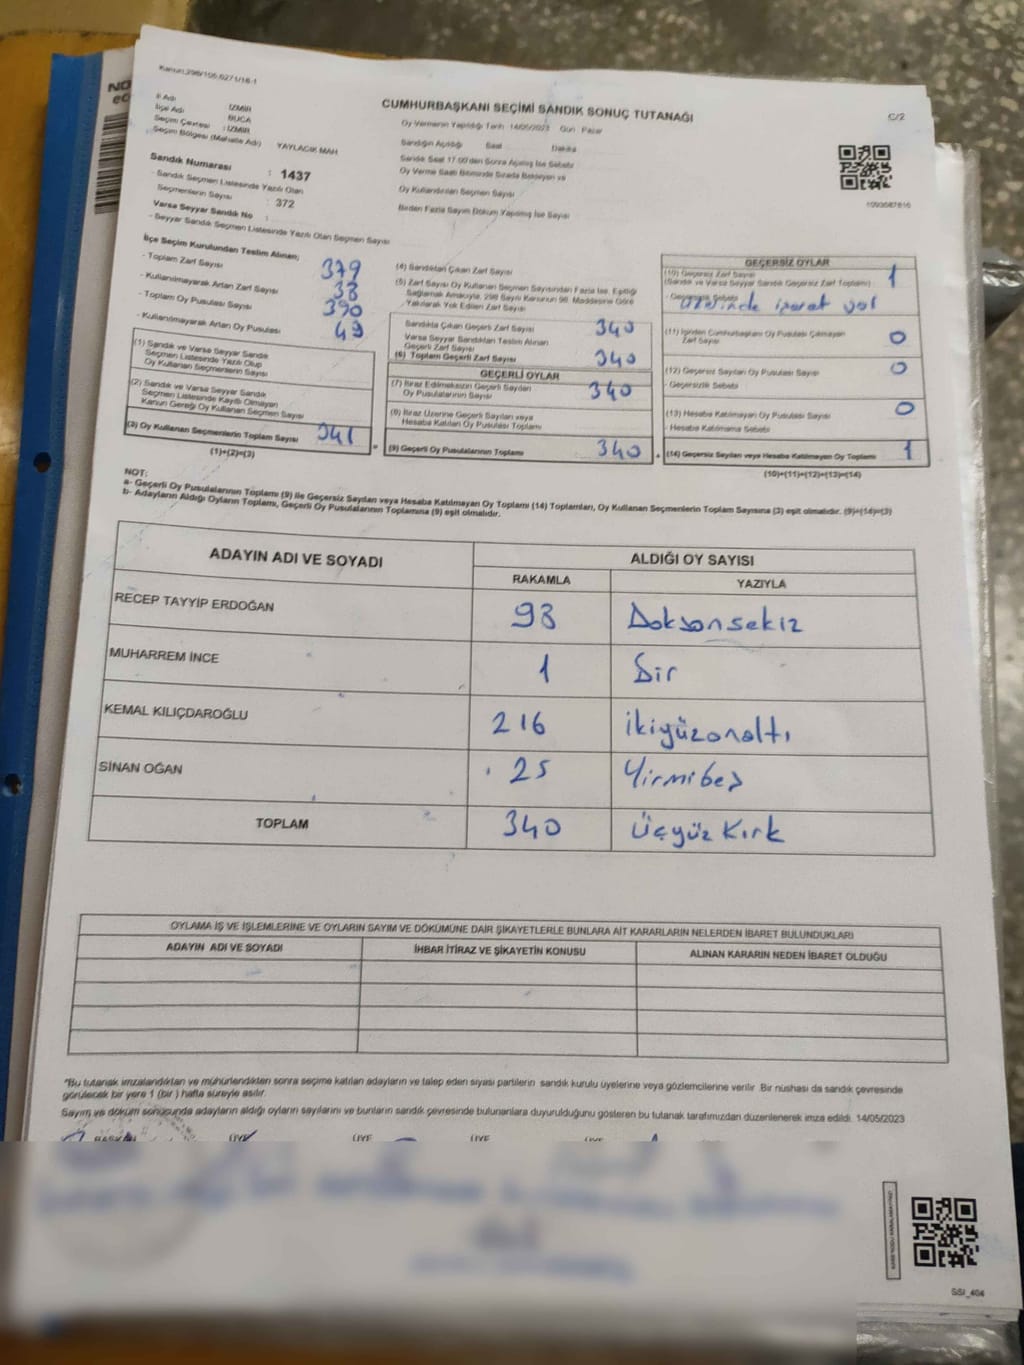 NO
Kanun:298/105,6271/16-1
CUMHURBAŞKANI SEÇİMİ SANDIK SONUÇ TUTANAĞI
C/2
İl Adı İZMİR
İlçe Adı BUCA
Seçim Çevresi : İZMİR
Seçim Bölgesi (Mahalle Adı) YAYLACIK MAH
Sandık Numarası : 1437
- Sandık Seçmen Listesinde Yazılı Olan
Seçmenlerin Sayısı : 372
Varsa Seyyar Sandık No :
- Seyyar Sandık Seçmen Listesinde Yazılı Olan Seçmen Sayısı
Oy Vermenin Yapıldığı Tarih 14/05/2023 Gün Pazar
Sandığın Açıldığı Saat Dakika
Sandık Saat 17:00'den Sonra Açılmış İse Sebebi
Oy Verme Saati Bitiminde Sırada Bekleyen ve
Oy Kullandırılan Seçmen Sayısı
Birden Fazla Sayım Döküm Yapılmış İse Sayısı
1093687816
İlçe Seçim Kurulundan Teslim Alınan;
- Toplam Zarf Sayısı 379
- Kullanılmayarak Artan Zarf Sayısı 38
- Toplam Oy Pusulası Sayısı 390
- Kullanılmayarak Artan Oy Pusulası 49
(1) Sandık ve Varsa Seyyar Sandık
Seçmen Listesinde Yazılı Olup
Oy Kullanan Seçmenlerin Sayısı
(2) Sandık ve Varsa Seyyar Sandık
Seçmen Listesinde Kayıtlı Olmayan
Kanun Gereği Oy Kullanan Seçmen Sayısı
(3) Oy Kullanan Seçmenlerin Toplam Sayısı 341
(1)+(2)=(3)
(4) Sandıktan Çıkan Zarf Sayısı
(5) Zarf Sayısı Oy Kullanan Seçmen Sayısından Fazla İse, Eşitliği
Sağlamak Amacıyla, 298 Sayılı Kanunun 98. Maddesine Göre
Yakılarak Yok Edilen Zarf Sayısı
Sandıkta Çıkan Geçerli Zarf Sayısı 340
Varsa Seyyar Sandıktan Teslim Alınan
Geçerli Zarf Sayısı
(6) Toplam Geçerli Zarf Sayısı 340
GEÇERLİ OYLAR
(7) İtiraz Edilmeksizin Geçerli Sayılan
Oy Pusulalarının Sayısı 340
(8) İtiraz Üzerine Geçerli Sayılan veya
Hesaba Katılan Oy Pusulası Toplamı
(9) Geçerli Oy Pusulalarının Toplamı 340
GEÇERSİZ OYLAR
(10) Geçersiz Zarf Sayısı
(Sandık ve Varsa Seyyar Sandık Geçersiz Zarf Toplamı) 1
- Geçersizlik Sebebi
üzerinde işaret var
(11) İçinden Cumhurbaşkanı Oy Pusulası Çıkmayan
Zarf Sayısı 0
(12) Geçersiz Sayılan Oy Pusulası Sayısı 0
- Geçersizlik Sebebi
(13) Hesaba Katılmayan Oy Pusulası Sayısı 0
- Hesaba Katılmama Sebebi
(14) Geçersiz Sayılan veya Hesaba Katılmayan Oy Toplamı 1
(10)+(11)+(12)+(13)=(14)
NOT:
a- Geçerli Oy Pusulalarının Toplamı (9) ile Geçersiz Sayılan veya Hesaba Katılmayan Oy Toplamı (14) Toplamları, Oy Kullanan Seçmenlerin Toplam Sayısına (3) eşit olmalıdır. (9)+(14)=(3)
b- Adayların Aldığı Oyların Toplamı, Geçerli Oy Pusulalarının Toplamına (9) eşit olmalıdır.
ADAYIN ADI VE SOYADI ALDIĞI OY SAYISI
RAKAMLA YAZIYLA
RECEP TAYYİP ERDOĞAN 98 Doksonsekiz
MUHARREM İNCE 1 Bir
KEMAL KILIÇDAROĞLU 216 ikiyüzonaltı
SİNAN OĞAN 25 Yirmibeş
TOPLAM 340 Üçyüz Kırk
OYLAMA İŞ VE İŞLEMLERİNE VE OYLARIN SAYIM VE DÖKÜMÜNE DAİR ŞİKAYETLERLE BUNLARA AİT KARARLARIN NELERDEN İBARET BULUNDUKLARI
ADAYIN ADI VE SOYADI İHBAR İTİRAZ VE ŞİKAYETİN KONUSU ALINAN KARARIN NEDEN İBARET OLDUĞU
"Bu tutanak imzalandıktan ve mühürlendikten sonra seçime katılan adayların ve talep eden siyasi partilerin sandık kurulu üyelerine veya gözlemcilerine verilir. Bir nüshası da sandık çevresinde
görülecek bir yere 1 (bir ) hafta süreyle asılır.
Sayım ve döküm sonucunda adayların aldığı oyların sayılarını ve bunların sandık çevresinde bulunanlara duyurulduğunu gösteren bu tutanak tarafımızdan düzenlenerek imza edildi. 14/05/2023
BAŞKAN ÜYE ÜYE ÜYE ÜYE
SSI_404